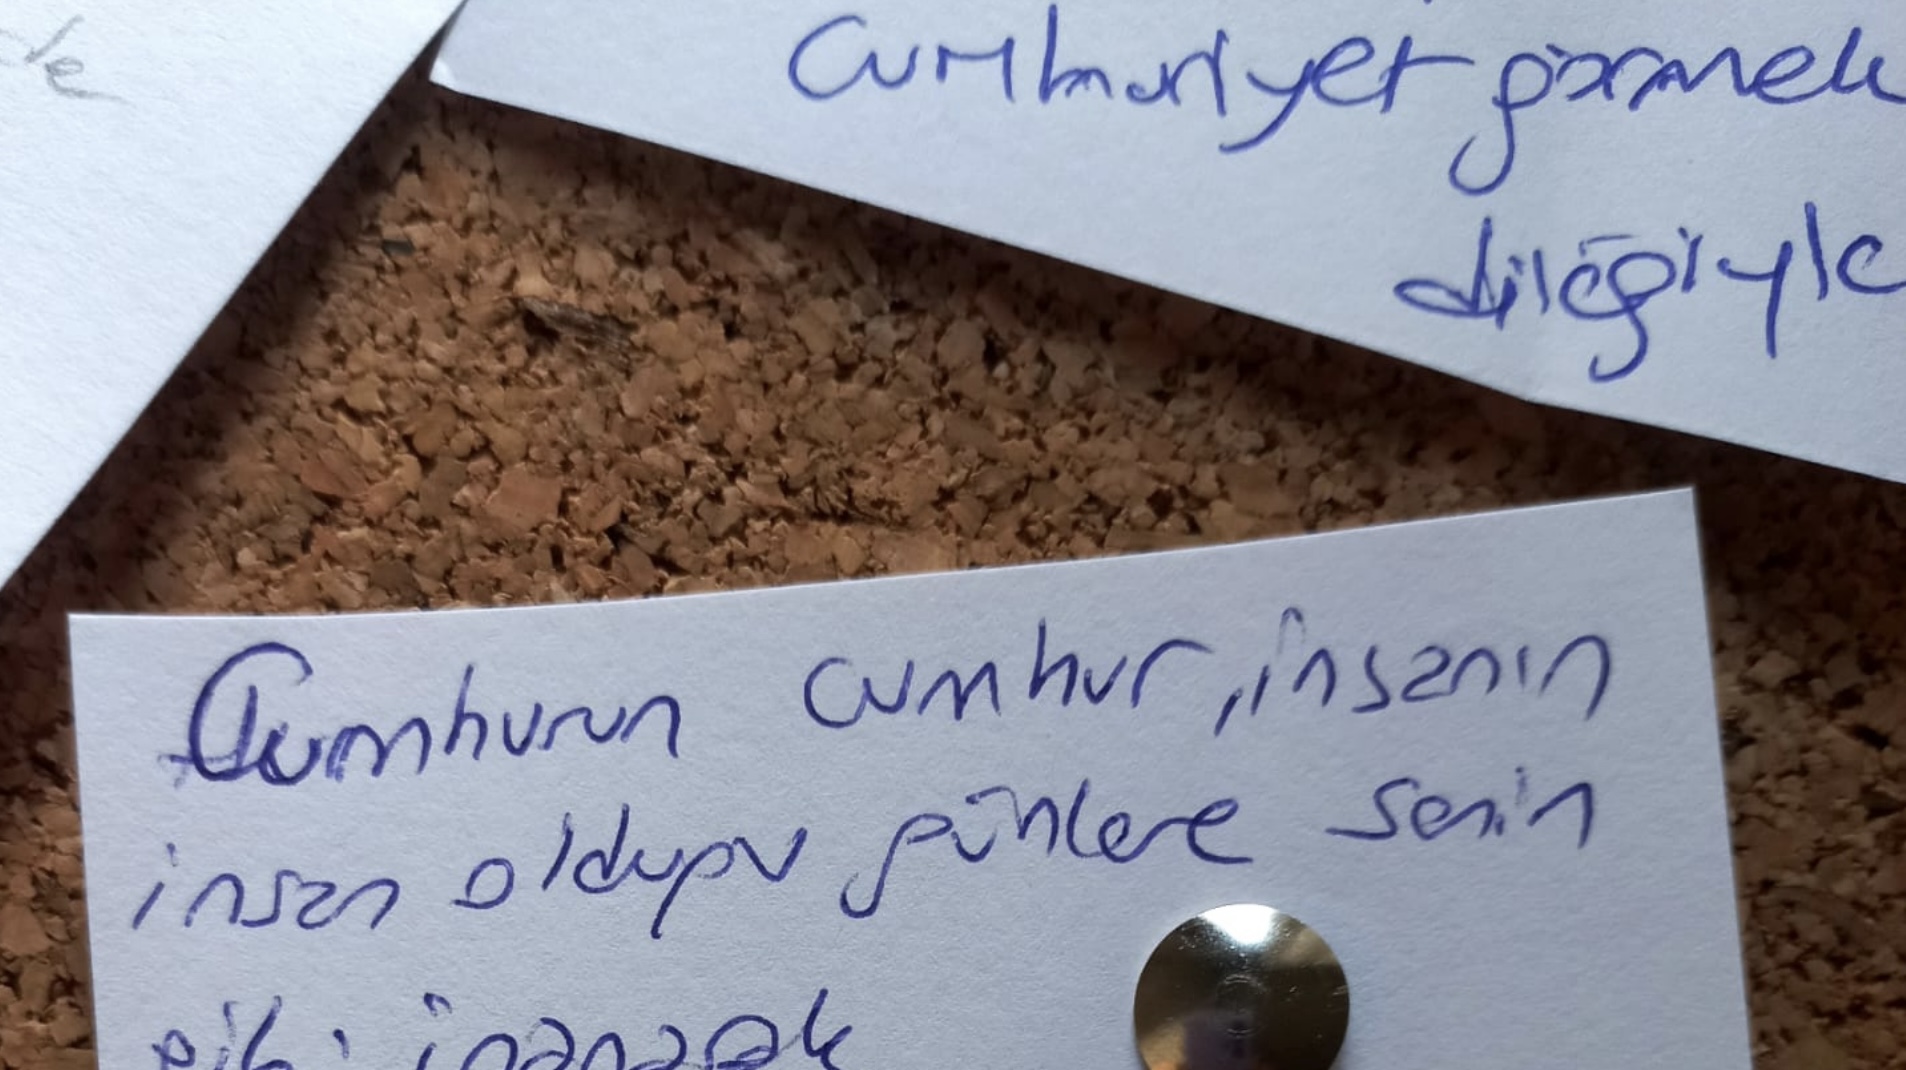 cumhuriyet görmek
dileğiyle
Cumhurun cumhur, insanın
insan olduğu günlere senin
gibi inanarak